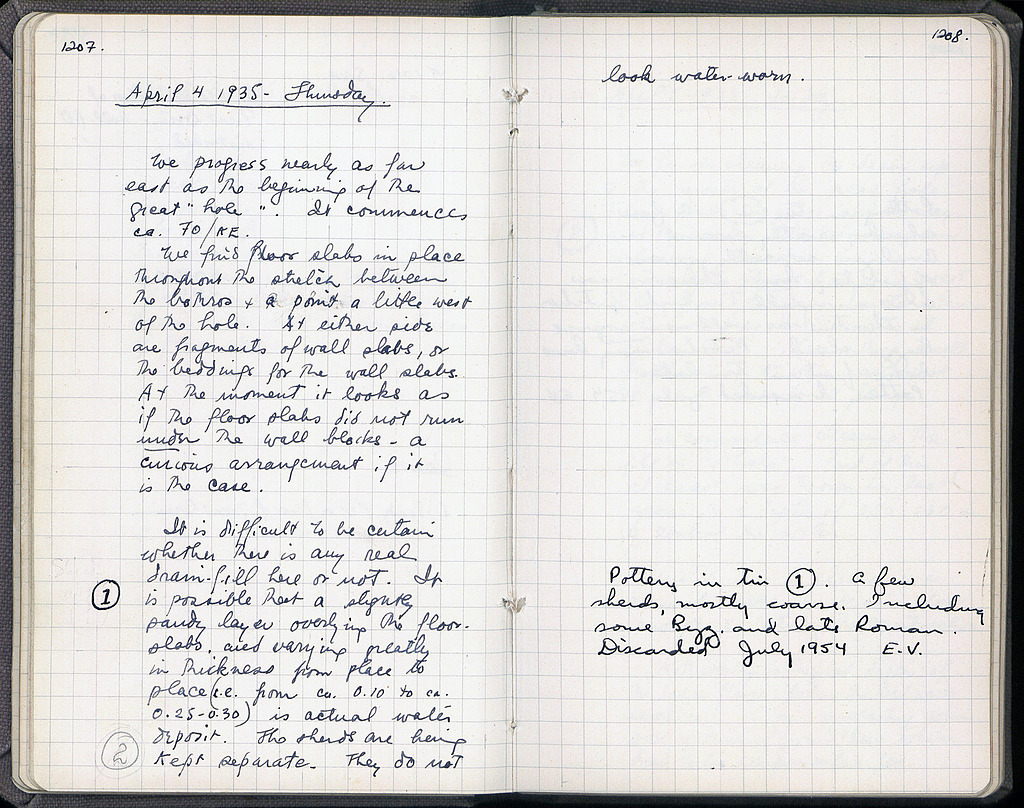 1207.
April 4 1935 - Thursday.
We progress nearly as far
east as the beginning of the
great "hole". It commences
ca. 70/KE.
We find floor slabs in place
throughout the stretch between
the bothros + a point a little west
of the hole. At either side
are fragments of wall slabs, or
the beddings for the wall slabs.
At the moment it looks as
if the floor slabs did not run
under the wall blocks - a
curious arrangement if it
is the case.
It is difficult to be certain
whether there is any real
drain-fill here or not. It
1
is possible that a slightly
sandy layer overlying the floor-
slabs, and varying greatly
in thickness from place to
place (i.e. from ca. 0.10 to ca.
0.25-0.30) is actual water
deposit. The sherds are being
2
kept separate. They do not
1208.
look water-worn.
Pottery in tin 1. A few
sherds, mostly coarse. Including
some Byz. and late Roman.
Discarded July 1954 E.V.